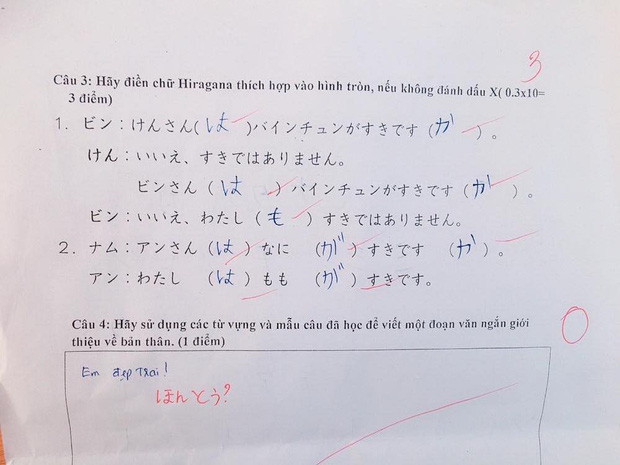 3
Câu 3: Hãy điền chữ Hiragana thích hợp vào hình tròn, nếu không đánh dấu X( 0.3x10=
3 điểm)
1. ビン：けんさん(は)バインチュンがすきです (か)。
けん：いいえ、すきではありません。
ビンさん (は)バインチュンがすきです (か)。
ビン：いいえ、わたし (も) すきではありません。
2. ナム：アンさん (は) なに (が) すきです (か)。
アン：わたし (は) もも (が) すきです。
Câu 4: Hãy sử dụng các từ vựng và mẫu câu đã học để viết một đoạn văn ngắn giới
thiệu về bản thân. (1 điểm)
0
Em đẹp trai!
ほんとう?